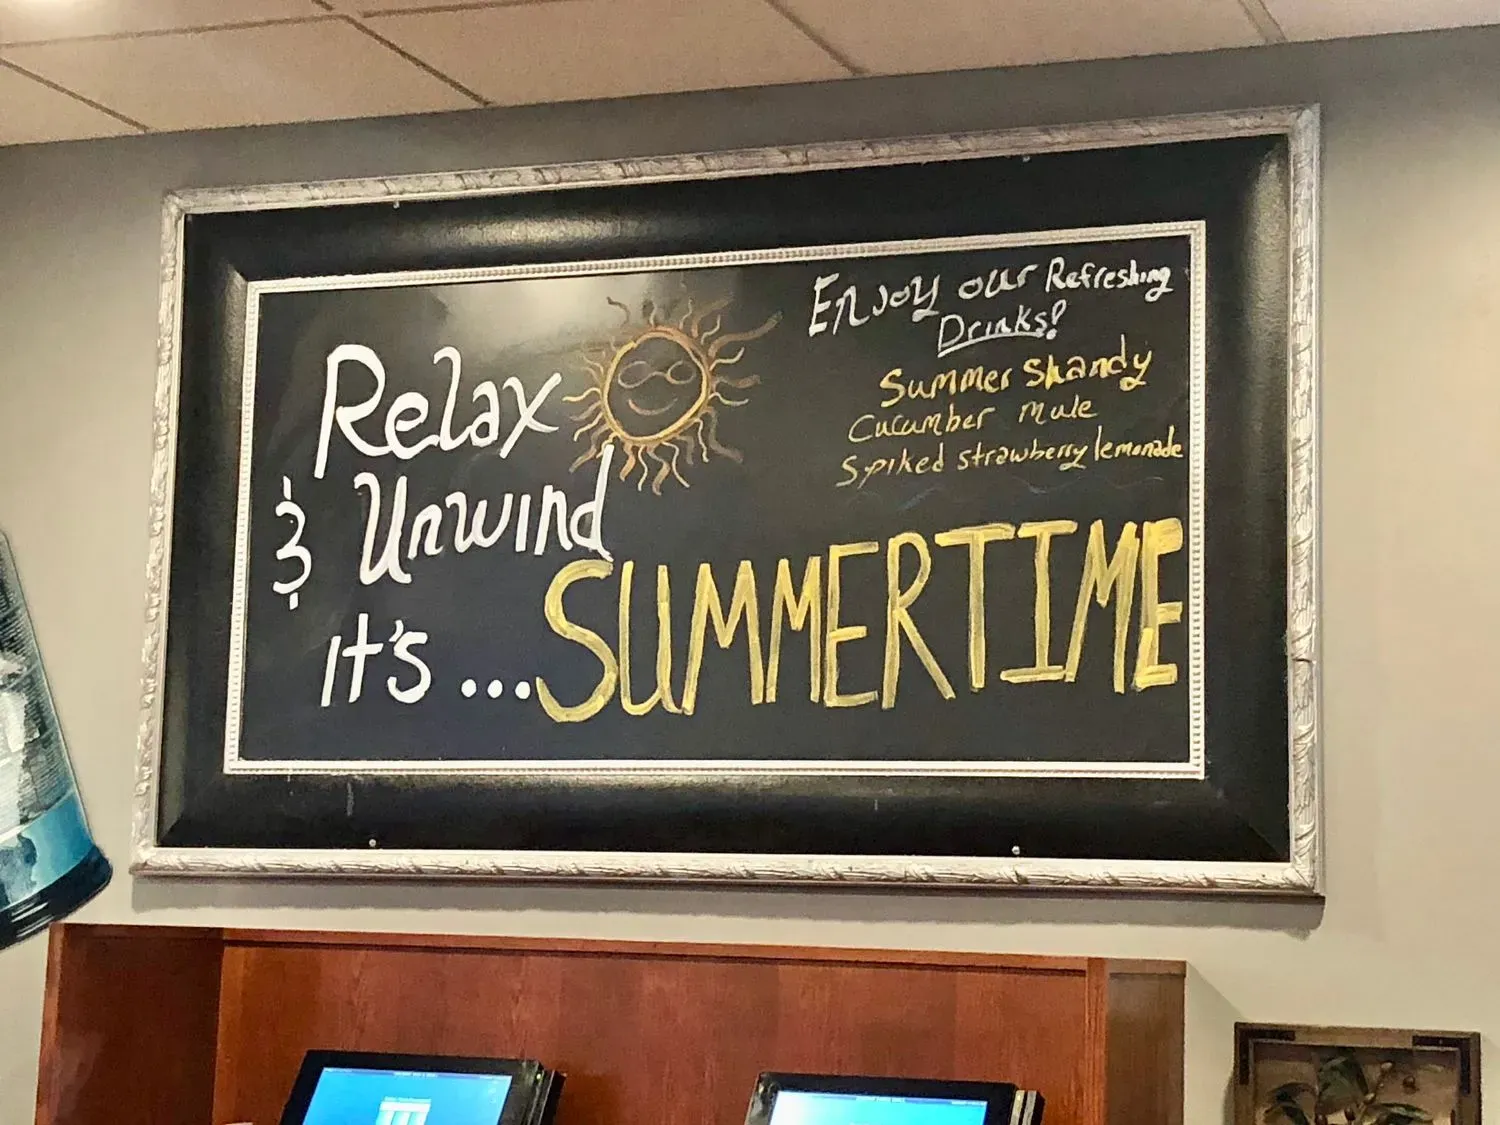 Relax
& Unwind
it's ... SUMMERTIME
Enjoy our Refreshing
Drinks!
Summer Shandy
Cucumber Mule
Spiked strawberry lemonade